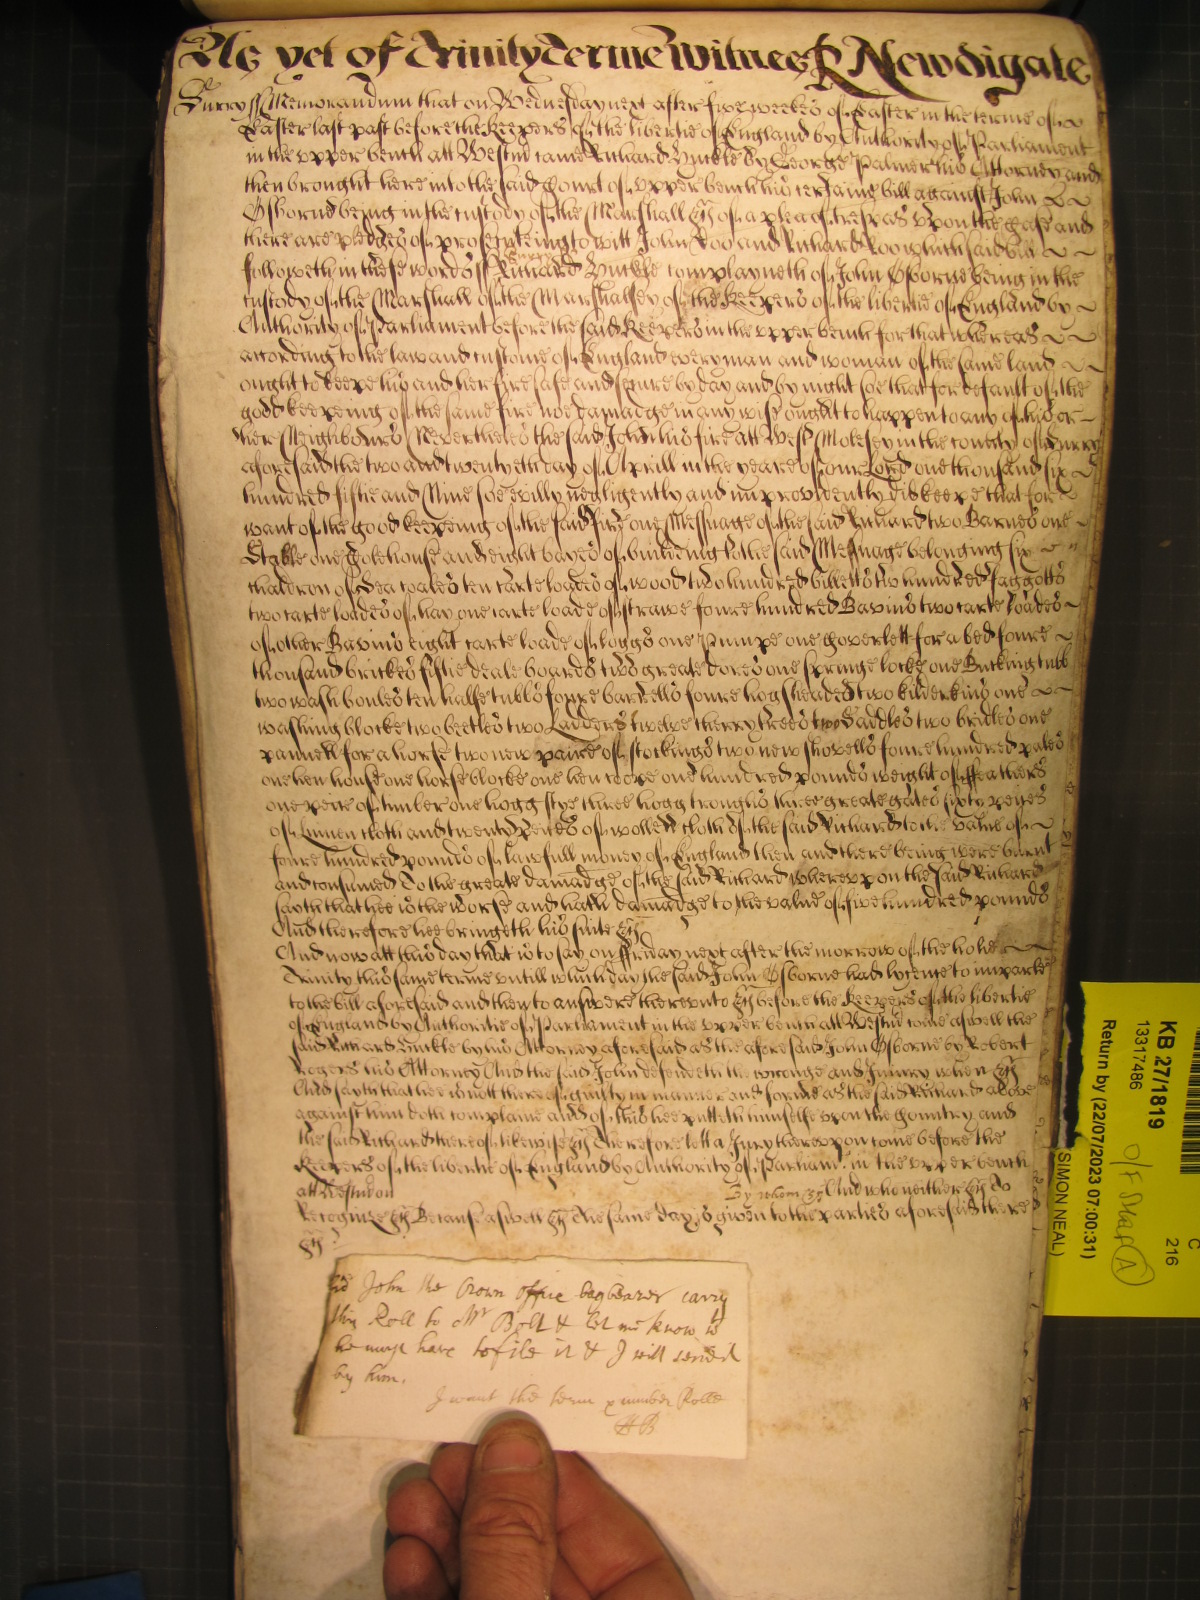 As yet of Trinity Terme Witnes R Newdigate
Surry ss Memorandum that on Wednesday next after five weekes of Easter in the terme of
Easter last past before the Keepers of the libertie of England by Authority of Parliament
in the upper bench att Westm̃ came Richard Huckle by George Palmer his Attorney and
then brought here into the said Court of upper bench his certaine bill against John
Osborne being in the custody of the Marshall &c of a plea of trespas upon the case and
there are pledges of prosecuteing to witt John Doo and Richard Roo which said bill
followeth in these words ss Surry Richard Huckle complayneth of John Osborne being in the
custody of the Marshall of the Marshallsey of the Keepers of the libertie of England by
Authority of Parliament before the said Keepers in the upper bench for that whereas
according to the law and custome of England every man and woman of the same land
ought to keepe his and her fire safe and secure by day and by night soe that for default of the
good keepeing of the same fire noe damadge in any wise ought to happen to any of his or
her Neighbours Neverthelesse the said John his fire att West Molesey in the county of Surry
aforesaid the two and twentyeth day of Aprill in the yeare of our Lord one thousand six
hundred fiftie and Nine soe evilly negligently and improvidently did keepe that for
want of the good keepeing of the said fire one Messuage of the said Richard two Barnes one
Stable one house and eight bayes of building to the said Messuage belonging six
chaldron of Sea coales ten carte loades of wood two hundred billetts two hundred faggotts
two carte loades of hay one carte loade of strawe foure hundred Bavins two carte loades
of other Bavins eight carte loade of loggs one Pumpe one Coverlett for a bed foure
thousand brickes fiftie deale boards two greate dores one springe locke one Bucking tubb
two wash boules ten halfe tubbs foure barrells foure hogsheades two kilderkins one
washing blocke two beetles two Ladders twelve cherry trees two Saddles two bridles one
pannell for a horse two new paire of stockings two new shovells foure hundred pales
one hen house one horse blocke one hen coope one hundred pounds weight of ffeathers
one peice of timber one hogg stye three hogg troughs three greate gates sixty peices
of Linnen cloth and twenty peices of wollen cloth of the said Richard to the value of
foure hundred pounds of lawfull money of England then and there being were burnt
and consumed To the greate damadge of the said Richard whereupon the said Richard
sayth that hee is the worse and hath damadge to the value of five hundred pounds
And therefore hee bringeth his suite &c
And now att this day that is to say on ffriday next after the morrow of the holie
Trinity this same terme untill which day the said John Osborne had licence to imparle
to the bill aforesaid and then to answere thereunto &c before the Keepers of the libertie
of England by Authoritie of Parliament in the upper bench att Westm̃ come aswell the
said Richard Huckle by his Attorney aforesaid as the aforesaid John Osborne by Robert
Rogers his Attorney And the said John defendeth the wronge and Injury when &c
And sayth that hee is nott thereof guilty in manner and forme as the said Richard above
against him doth complaine and of this hee putteth himselfe upon the Country and
the said Richard thereof likewise &c Therefore lett a Jury thereupon come before the
Keepers of the libertie of England by Authority of Parliam̃t in the upper bench
att Westm̃ on By whom &c And who neither &c To
Recognize &c Because aswell &c The same day is given to the parties aforesaid there
&c
John the Crown office bagbearer carry
this Roll to Mr Bolt & let me know
he may have to file it & I will send
by him.
I want the term number Rolle
HB
KB 27/1819
13317486
Return by (22/07/2023 07:00:31)
SIMON NEAL)
C
216
A